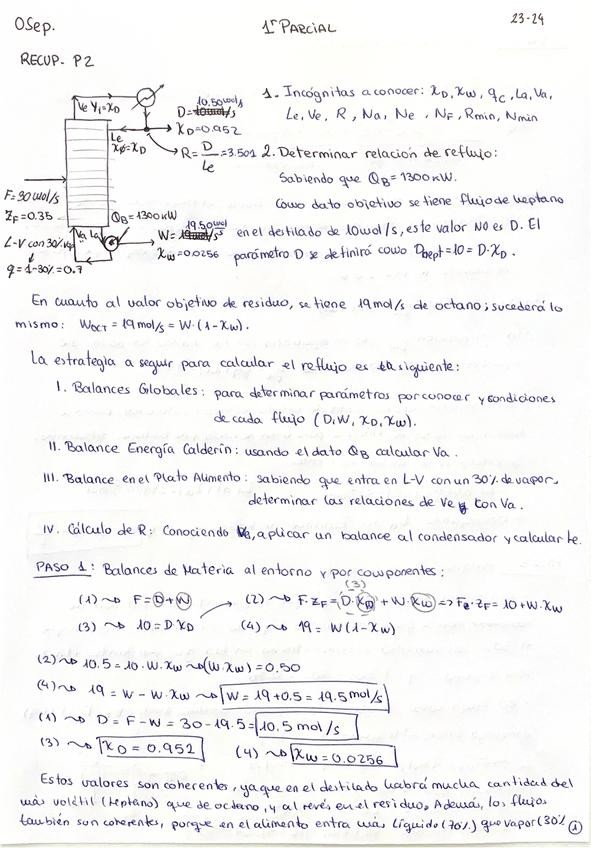 OSep.
1er PARCIAL
23-24
RECUP- P2
Ve Y1=XD
Le
X0=XD
D= 10.50mol/s
XD=0.952
R= D/Le =3.501
F=30mol/s
ZF=0.35
L-V con 30% vap
q=1-30%=0.7
QB=1300kW
Va La
W= 19.50mol/s
XW=0.0256
1. Incógnitas a conocer: XD, XW, qC, La, Va,
Le, Ve, R, Na, Ne, NF, Rmin, Nmin
2. Determinar relación de reflujo:
Sabiendo que QB=1300kW.
Como dato objetivo se tiene flujo de heptano
en el destilado de 10mol/s, este valor NO es D. El
parámetro D se definirá como Dhept=10=D·XD.
En cuanto al valor objetivo de residuo, se tiene 19mol/s de octano; sucederá lo
mismo: WOCT=19mol/s=W·(1-XW).
La estrategia a seguir para calcular el reflujo es la siguiente:
I. Balances Globales: para determinar parámetros por conocer y condiciones
de cada flujo (D,W, XD, XW).
II. Balance Energía Calderín: usando el dato QB calcular Va.
III. Balance en el Plato Alimento: sabiendo que entra en L-V con un 30% de vapor,
determinar las relaciones de Ve con Va.
IV. Cálculo de R: Conociendo Va, aplicar un balance al condensador y calcular Le.
PASO 1: Balances de Materia al entorno y por componentes:
(1) ~> F=D+W (2) ~> F·ZF=D·XD+W·XW => F·ZF=10+W·XW
(3)
(3) ~> 10=D·XD (4) ~> 19=W(1-XW)
(2) ~> 10.5=10·W·XW ~> (W·XW)=0.50
(4) ~> 19=W-W·XW ~> W=19+0.5=19.5mol/s
(1) ~> D=F-W=30-19.5=10.5 mol/s
(3) ~> XD=0.952 (4) ~> XW=0.0256
Estos valores son coherentes, ya que en el destilado habrá mucha cantidad del
más volátil (heptano) que de octano, y al revés en el residuo. Además, los flujos
también son coherentes, porque en el alimento entra más líquido (70%) que vapor (30%)
1